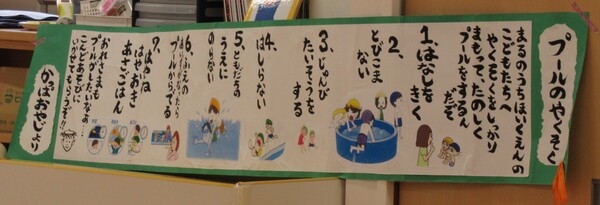 プールのやくそく
まるのうちほいくえんの
こどもたちへ
やくそくをしっかり
まもって、たのしく
プールをするんだぞ
1.はなしをきく
2.とびこまない
3.じゅんびたいそうをする
4.はしらない
5.ともだちのうえにのらない
6.ふえのあいずがなったらプールからでる
7.はやね
はやおき
あさごはん
おれさまも
プールがしたいなぁ…
こんどあそびに
いかせてもらうぞ!!
かばおやじより